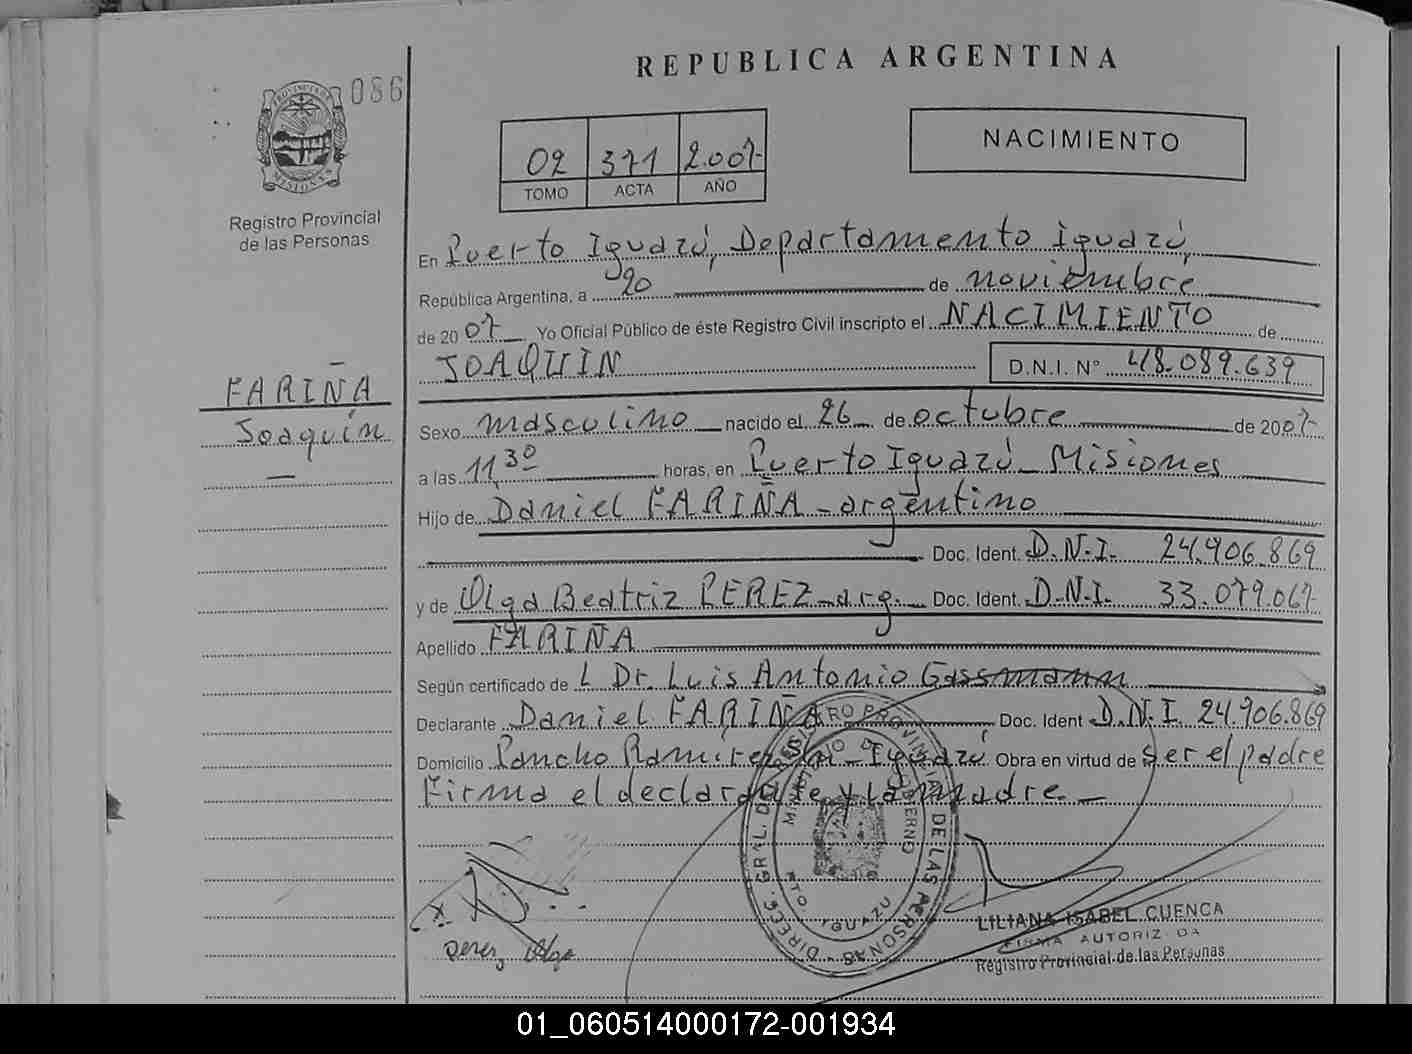 REPUBLICA ARGENTINA
086
PROVINCIA DE
MISIONES
Registro Provincial
de las Personas
02 371 2.007-
TOMO ACTA AÑO
NACIMIENTO
En Puerto Iguazú, Departamento Iguazú,
República Argentina, a 20 de noviembre
de 2007 Yo Oficial Público de éste Registro Civil inscripto el NACIMIENTO de
JOAQUIN D.N.I. Nº 48.089.639
FARIÑA
Joaquín
Sexo masculino nacido el 26 de octubre de 2007-
a las 11,30 horas, en Puerto Iguazú - Misiones
Hijo de Daniel FARIÑA - argentino
Doc. Ident. D.N.I. 24.906.869
y de Olga Beatriz PEREZ - arg. Doc. Ident. D.N.I. 33.079.067-
Apellido FARIÑA
Según certificado de L Dr. Luis Antonio Gassmann
Declarante Daniel FARIÑA Doc. Ident D.N.I. 24.906.869
Domicilio Pancho Ramirez S/n - Iguazú Obra en virtud de ser el padre
Firma el declarante y la madre
DIREC. GRAL. DEL REGISTRO PROVINCIAL DE LAS PERSONAS
MINISTERIO DE GOBIERNO
PTO. IGUAZU
Perez Olga
LILIANA ISABEL CUENCA
FIRMA AUTORIZADA
Registro Provincial de las Personas
01_060514000172-001934